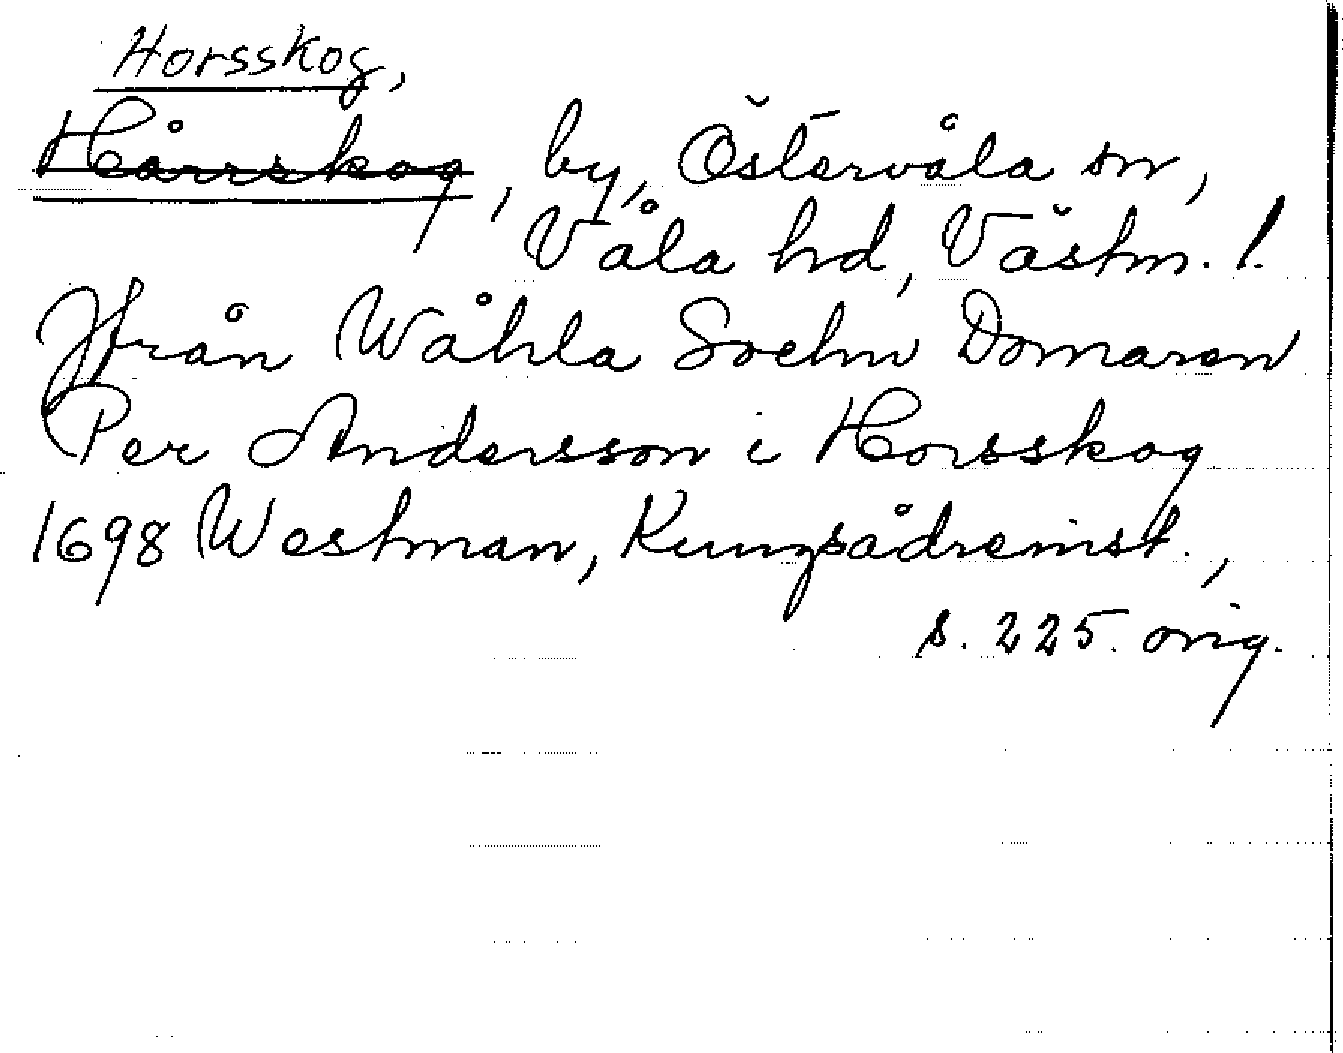 Horsskog,
Hårrskog, by, Östervåla sn,
Våla hd, Västm. l.
Ifrån Wåhla Sochn Domaren
Per Andersson i Horsskog
1698 Westman, Kungsådreinst.,
s. 225. orig.